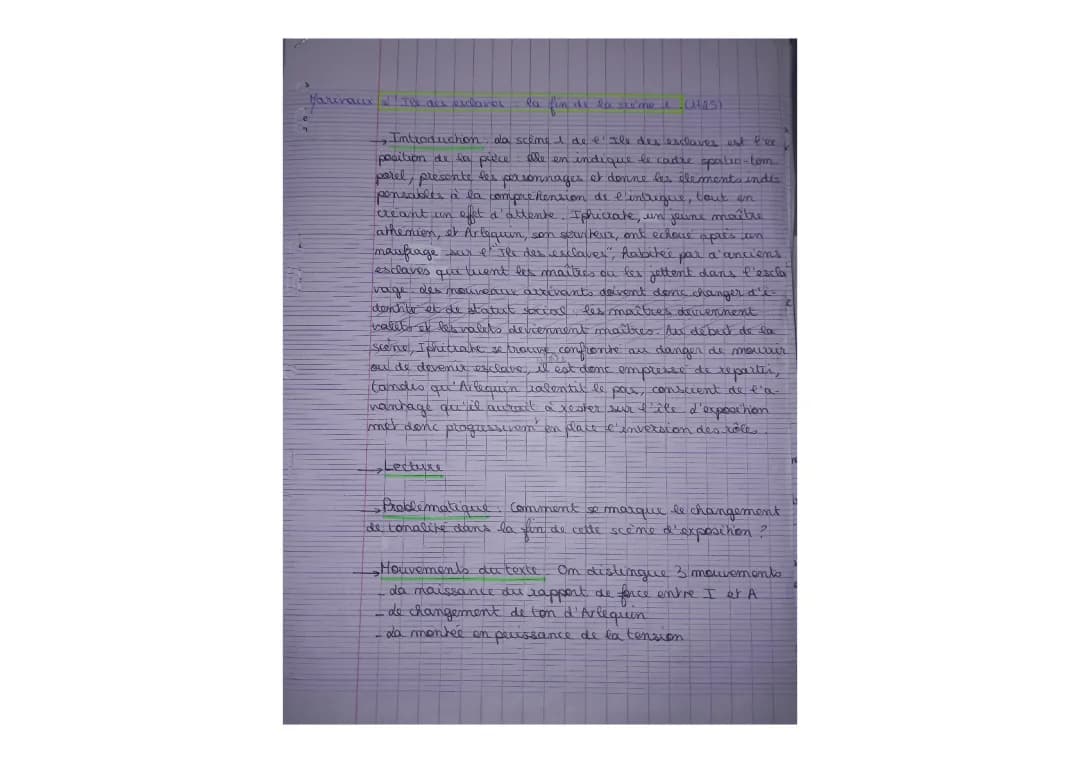 Marivaux L'Ile des esclaves : la fin de la scène 1 (1725)
→ Introduction : La scène 1 de l'Ile des esclaves est l'ex
position de la pièce : elle en indique le cadre spatio-tem
porel, présente les personnages et donne les élements indis
pensables à la compréhension de l'intrigue, tout en
créant un effet d'attente. Iphicrate, un jeune maître
athénien, et Arlequin, son serviteur, ont échoué après un
naufrage sur l'"Ile des esclaves", habitée par d'anciens
esclaves qui tuent les maîtres ou les jettent dans l'escla
vage. Les nouveaux arrivants doivent donc changer d'i-
dentité et de statut social : les maîtres deviennent
valets et les valets deviennent maîtres. Au début de la
scène, Iphicrate se trouve confronté au danger de mourir
ou de devenir esclave, il est donc empressé de repartir,
tandis qu'Arlequin ralentit le pas, conscient de l'a-
vantage qu'il aurait à rester sur l'île. L'exposition
met donc progressivem^t en place l'inversion des rôles.
→ Lecture
→ Problématique : Comment se marque le changement
de tonalité dans la fin de cette scène d'exposition ?
→ Mouvements du texte : On distingue 3 mouvements
- La naissance du rapport de force entre I et A
- Le changement de ton d'Arlequin
- La montée en puissance de la tension